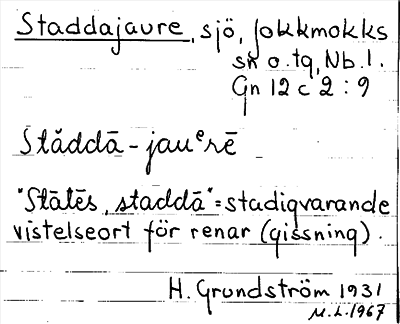 Staddajaure, sjö, Jokkmokks
sn o. tg, Nb. l.
Gn 12 c 2 : 9
Stăddā - jauᵉrē
"Stātēs, staddā" = stadigvarande
vistelseort för renar (gissning).
H. Grundström 1931
M.L. 1967